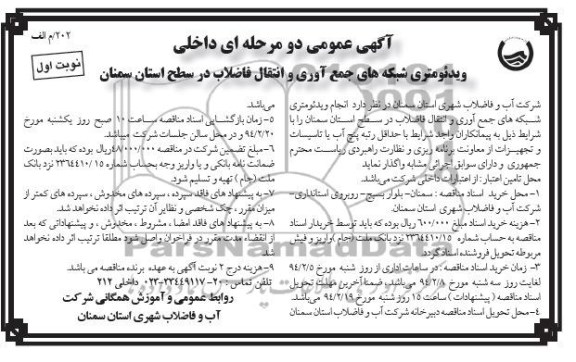 ۲۰۲/م الف
نوبت اول
آگهی عمومی دو مرحله ای داخلی
ویدئومتری شبکه های جمع آوری و انتقال فاضلاب در سطح استان سمنان
شرکت آب و فاضلاب شهری استان سمنان در نظر دارد انجام ویدئومتری
شبکه های جمع آوری و انتقال فاضلاب در سطح استان سمنان را با
شرایط ذیل به پیمانکاران واجد شرایط با حداقل رتبه پنج آب یا تاسیسات
و تجهیزات از معاونت برنامه ریزی و نظارت راهبردی ریاست محترم
جمهوری و دارای سوابق اجرائی مشابه واگذار نماید
محل تامین اعتبار: از اعتبارات داخلی شرکت می‌باشد.
۱- محل خرید اسناد مناقصه : سمنان- بلوار بسیج- روبروی استانداری-
شرکت آب و فاضلاب شهری استان سمنان.
۲- هزینه خرید اسناد مبلغ ۶۰۰/۰۰۰ ریال بوده که باید توسط خریدار اسناد
مناقصه به حساب شماره ۲۳۶۴۴۱۰/۱۵ نزد بانک ملت (جام) واریز و فیش
مربوطه تحویل فروشنده اسناد گردد.
۳- زمان خرید اسناد مناقصه : در ساعات اداری از روز شنبه مورخ ۹۴/۲/۵
لغایت روز سه شنبه مورخ ۹۴/۲/۸ می باشد. ضمنا آخرین مهلت تحویل
اسناد مناقصه ( پیشنهادات ) ساعت ۱۵ روز شنبه مورخ ۹۴/۲/۱۹ می‌باشد.
۴- محل تحویل اسناد مناقصه دبیرخانه شرکت آب و فاضلاب شهری استان سمنان
می‌باشد.
۵- زمان بازگشایی اسناد مناقصه ساعت ۱۰ صبح روز یکشنبه مورخ
۹۴/۲/۲۰ و در محل سالن جلسات شرکت میباشد.
۶- مبلغ تضمین شرکت در مناقصه ۴۸/۰۰۰/۰۰۰ ریال بوده که باید بصورت
ضمانت نامه بانکی و یا واریز وجه بحساب شماره ۲۳۶۴۴۱۰/۱۵ نزد بانک
ملت (جام ) تهیه و تسلیم شود.
۷- به پیشنهاد های فاقد سپرده ، سپرده های مخدوش ، سپرده های کمتر از
میزان مقرر ، چک شخصی و نظایر آن ترتیب اثر داده نخواهد شد.
۸- به پیشنهاد های فاقد امضا ، مشروط ، مخدوش ، و پیشنهاداتی که بعد
از انقضاء مدت مقرر در فراخوان واصل شود مطلقا ترتیب اثر داده نخواهد
شد.
۹- هزینه درج ۲ نوبت آگهی به عهده برنده مناقصه می باشد.
تلفن تماس : ۲۰-۳۳۴۴۹۱۱۷-۰۲۳ داخلی ۲۱۲
روابط عمومی و آموزش همگانی شرکت
آب و فاضلاب شهری استان سمنان
ParsNamadData